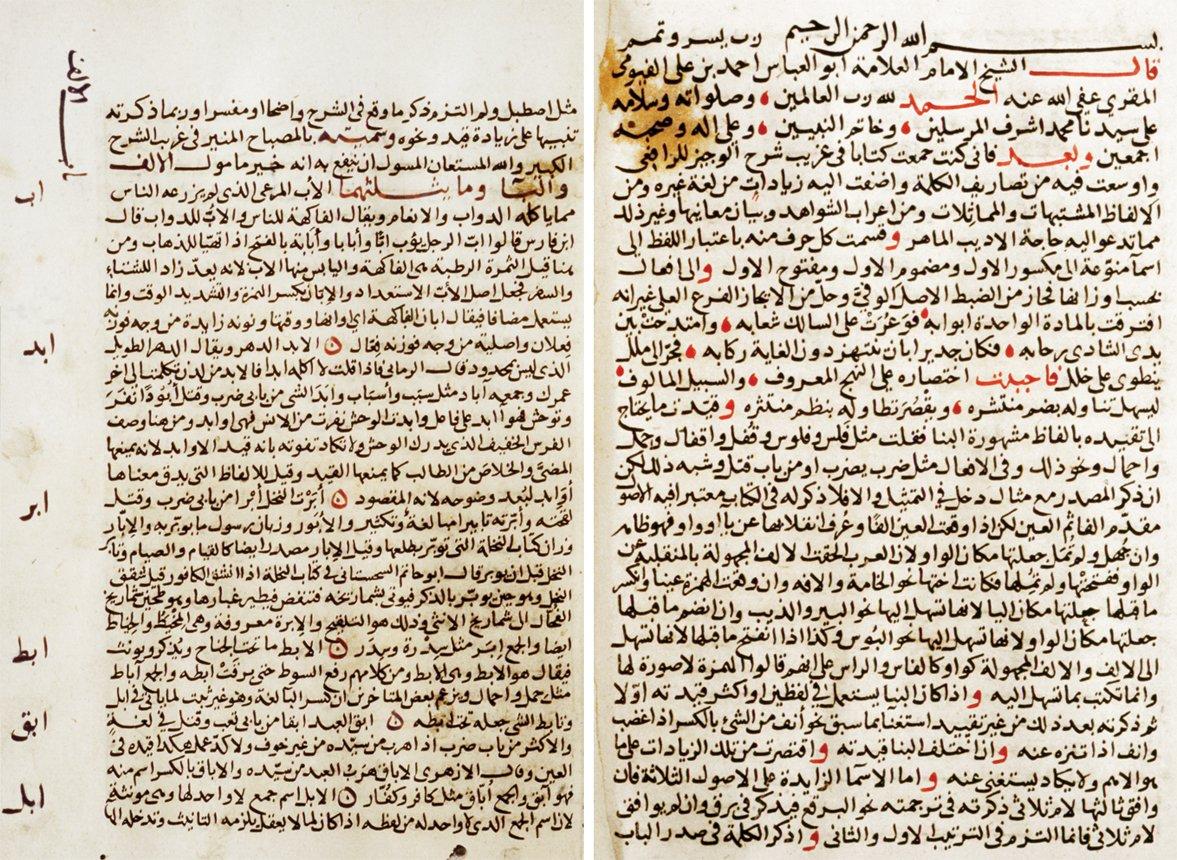 بسم الله الرحمن الرحيم رب يسر وتمم
قال الشيخ الامام العلامة ابو العباس احمد بن على الفيومى
المقرى عفى الله عنه الحمد لله رب العالمين وصلواته وسلامه
على سيدنا محمد اشرف المرسلين وخاتم النبيين وعلى اله وصحبه
اجمعين وبعد فانى كنت جمعت كتابا فى غريب شرح الوجيز للرافعى
واوسعت فيه من تصاريف الكلمة واضفت اليه زيادات من لغة غيره ومن
الالفاظ المشتبهات والمماثلات ومن اعراب الشواهد وبيان معانيها وغير ذلك
مما تدعو اليه حاجة الاديب الماهر وقسمت كل حرف منه باعتبار اللفظ الى
اسما منوعة الى مكسور الاول ومضموم الاول ومفتوح الاول والى افعال
بحسب اوزانها فحاز من الضبط الاصل الوفى وحل من الايجاز الفرع العلى غير انه
افترقت بالمادة الواحدة ابوابه فوعرت على السالك شعابه وامتدحت بين
يدى الشادى رحابه فكان جديرا بان تنبهر دون الغاية ركابه فجر الى ملل
ينطوى على خلل فاحببت اختصاره على النهج المعروف والسبيل المالوف
ليسهل تناوله بضم منتشره ويقصر تطاوله بنظم منتثره وقيدت ما يحتاج
الى تقييده بالفاظ مشهورة البنا فقلت مثل فلس وفلوس وقفل واقفال وحمل
واحمال ونحو ذلك وفى الافعال مثل ضرب يضرب او من باب قتل وشبه ذلك لكن
ان ذكر المصدر مع مثال دخل فى التمثيل والا فلا ذكر له فى الكتاب معتبرا فيه الاصول
مقدم الفا ثم العين لكن اذا وقعت العين الفا وعرف انقلابها عن يا او واو فهو ظاهر
وان جهل ولم تمل جعلتها مكان الواو لان العرب الحقت الالف المجهولة بالمنقلبة عن
الواو ففتحتها ولم تملها فكانت اختها نحو الخامة والافة وان وقعت الهمزة عينا وانكسر
ما قبلها جعلتها مكان اليا لانها تسهل اليها نحو البير والذيب وان انضم ما قبلها
جعلتها مكان الواو لانها تسهل اليها نحو البوس وكذا اذا انفتح ما قبلها لانها تسهل
الى الالف والالف المجهولة كواو كالفاس والراس على انهم قالوا الهمزة لا صورة لها
وانما تكتب بما تسهل اليه واذا كان البنا يستعمل فى لفظين او اكثر قيدته اولا
ثم ذكرته بعد ذلك من غير تقييد استغنا بما سبق نحو انف من الشى بالكسر اذا غضب
وانف اذا تنزه عنه وان اختلف البنا قيدته واقتصرت من تلك الزيادات على ما
هو الاهم ولا يكاد يستغنى عنه واما الاسما الزايدة على الاصول الثلاثة فان
وافق ثالثها لام ثلاثى ذكرته فى ترجمته نحو البرقع فيذكر فى برق وان لم يوافق
لام ثلاثى فانما التزم فى الترتيب الاول والثانى واذكر الكلمة فى صدر الباب
مثل اصطبل ولم التزم ذكر ما وقع فى الشرح واضحا او مفسرا وربما ذكرته
تنبيها على زيادة قيد ونحوه وسميته بالمصباح المنير فى غريب الشرح
الكبير والله المستعان المسول ان ينفع به انه خير مامول الالف
والبا وما يثلثهما الاب المرعى الذى لم يزرعه الناس
اب
مما ياكله الدواب والانعام ويقال الفاكهة للناس والاب للدواب قال
ابن فارس قالوا اب الرجل يؤب ابا وابابا وابابة بالفتح اذا تهيا للذهاب ومن
هنا قيل الثمرة الرطبة هى الفاكهة واليابس منها الاب لانه يعد زادا للشتاء
والسفر فجعل اصل الاب الاستعداد والابان بكسر الهمزة والتشديد الوقت وانما
يستعمل مضافا فيقال ابان الفاكهة اى اوانها ووقتها ونونه زايدة من وجه فوزنه
فعلان واصلية من وجه فوزنه فعال الابد الدهر ويقال الدهر الطويل
ابد
الذى ليس بمحدود قال الرمانى فاذا قلت لا اكلمه ابدا فالابد من لدن تكلمت الى اخر
عمرك وجمعه آباد مثل سبب واسباب وابد الشى من بابى ضرب وقتل ابودا نفر
وتوحش فهو ابد على فاعل وابدت الوحش نفرت من الانس فهى اوابد ومن هنا وصف
الفرس الخفيف الذى يدرك الوحش ولا تكاد تفوته بانه قيد الاوابد لانه يمنعها
المضى والخلاص من الطالب كما يمنعها القيد وقيل للالفاظ التى يدق معناها
اوابد لبعد وضوحه لانه المقصود ابرت النخل ابرا من بابى ضرب وقتل
ابر
لقحته وابرته تابيرا مبالغة وتكثير والابور وزان رسول ما يوبر به والابار
وزان كتاب النخلة التى توبر بطلعها وقيل الابار مصدر ايضا كالقيام والصيام وتابر
النخل قبل ان يوبر قال ابو حاتم السجستانى فى كتاب النخلة اذا انشق الكافور قيل شقق
النخل وهو حين يوبر بالذكر فيوتى بشماريخه فتنفض فيطير غبارها وهو طحين شماريخ
الفحال الى شماريخ الانثى وذلك هو التلقيح والابرة معروفة وهى المخيط والخياط
ايضا والجمع ابر مثل سدرة وسدر الابط ما تحت الجناح ويذكر ويونث
ابط
فيقال هو الابط وهى الابط ومن كلامهم رفع السوط حتى برقت ابطه والجمع آباط
مثل حمل واحمال ويزعم بعض المتاخرين ان كسر البا لغة وهو غير ثبت لما ياتى فى ابل
وتابط الشى جعله تحت ابطه ابق العبد ابقا من بابى تعب وقتل فى لغة
ابق
والاكثر من باب ضرب اذا هرب من سيده من غير خوف ولا كد عمل هكذا قيده فى
العين وقال الازهرى الاباق هرب العبد من سيده والاباق بالكسر اسم منه
فهو ابق والجمع اباق مثل كافر وكفار الابل اسم جمع لا واحد لها وهى مونثة
ابل
لان اسم الجمع الذى لا واحد له من لفظه اذا كان لما لا يعقل يلزمه التانيث وتدخله الها